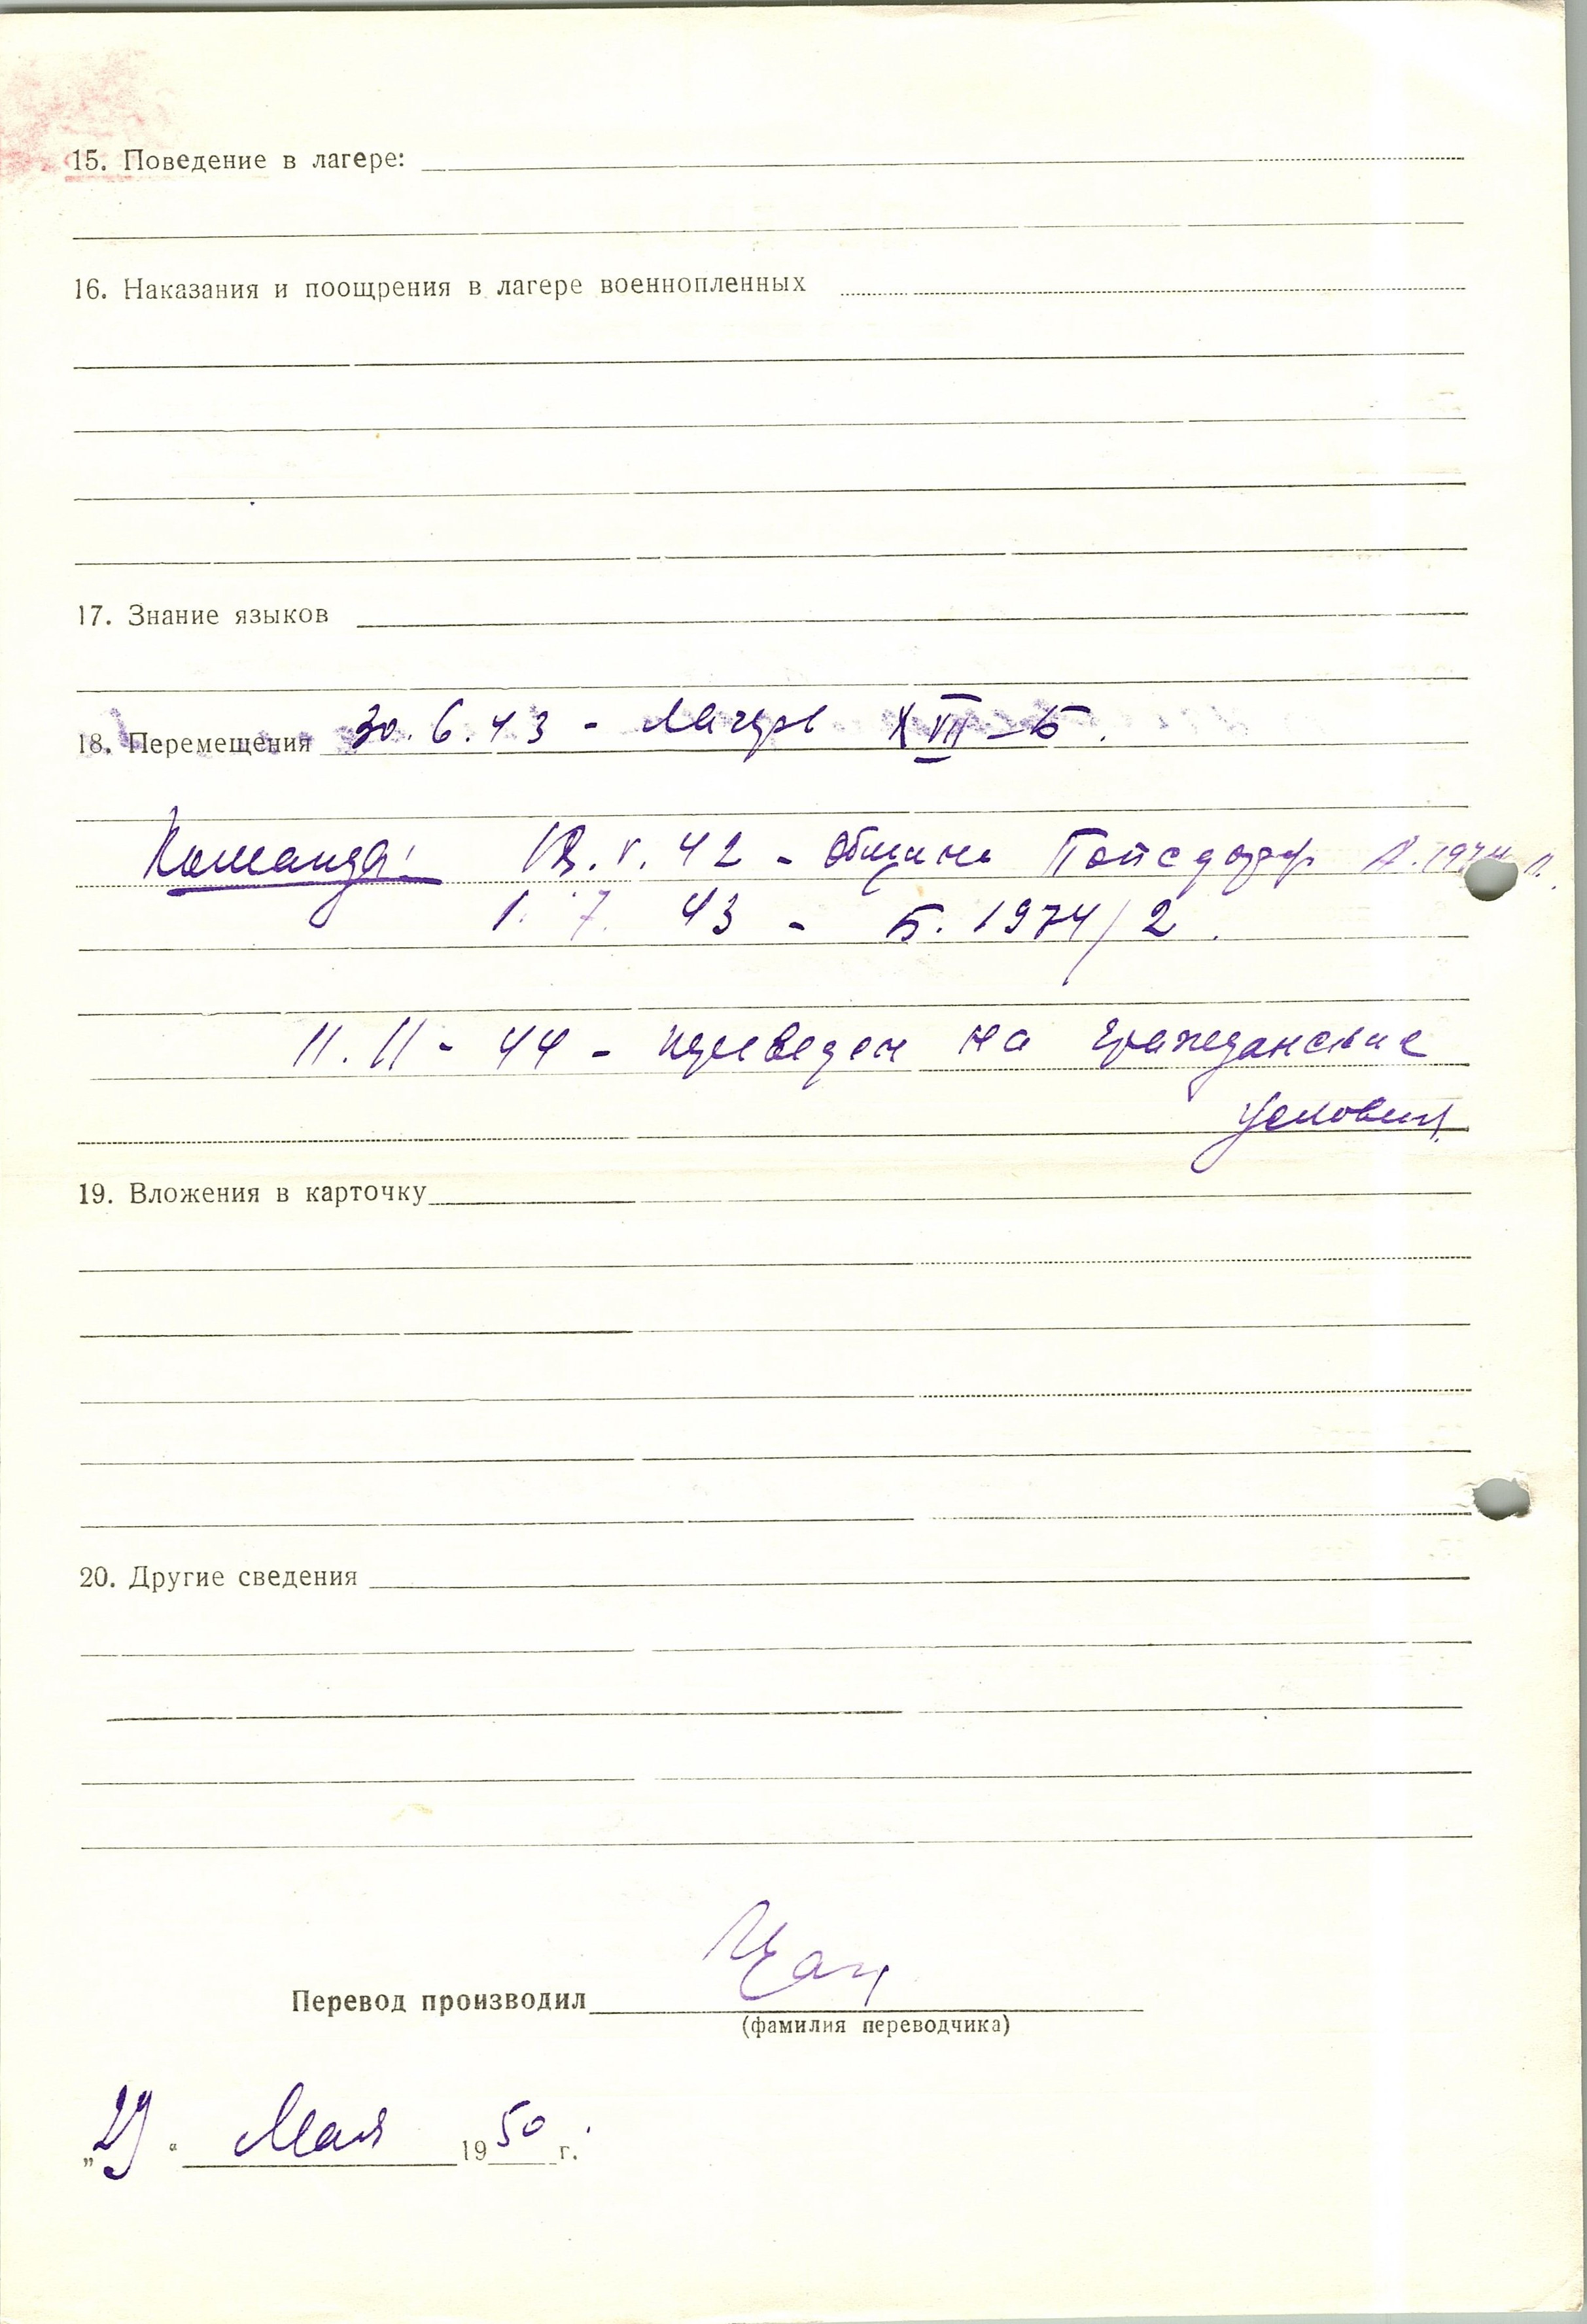 15. Поведение в лагере:
16. Наказания и поощрения в лагере военнопленных
17. Знание языков
18. Перемещения 30.6.43 - лагерь XVII-Б.
Команда: V. 42 - община Пойсдорф А. 1974
1. 7. 43 - Б. 1974/2.
11.11-44 - переведен на гражданские
условия.
19. Вложения в карточку
20. Другие сведения
Перевод производил
(фамилия переводчика)
„29“ Мая 1950 г.